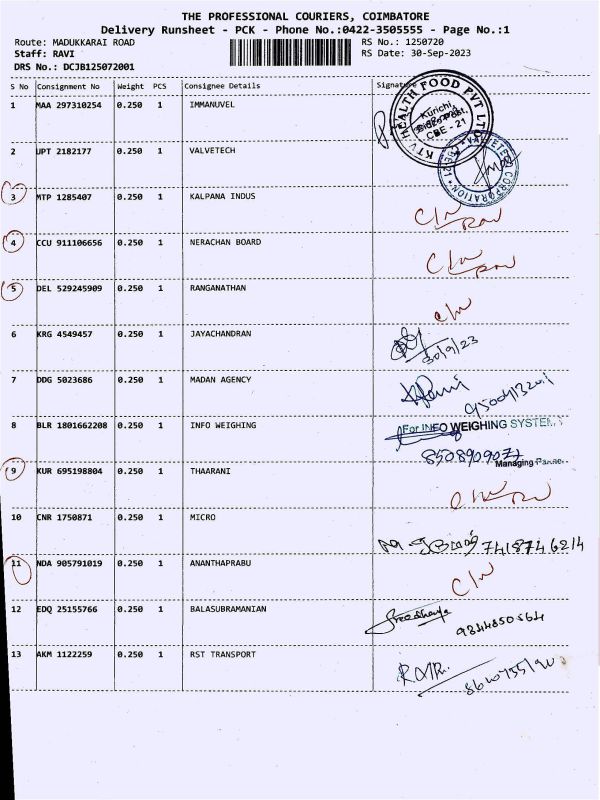 THE PROFESSIONAL COURIERS, COIMBATORE
Delivery Runsheet - PCK - Phone No.:0422-3505555 - Page No.:1
Route: MADUKKARAI ROAD RS No.: 1250720
Staff: RAVI RS Date: 30-Sep-2023
DRS No.: DCJB125072001
S No Consignment No Weight PCS Consignee Details Signature
1 MAA 297310254 0.250 1 IMMANUVEL
KTV HEALTH FOOD PVT LTD
Kurichi
CBE - 21
2 UPT 2182177 0.250 1 VALVETECH
CORPORATION
3 MTP 1285407 0.250 1 KALPANA INDUS C/N
4 CCU 911106656 0.250 1 NERACHAN BOARD C/N
5 DEL 529245909 0.250 1 RANGANATHAN C/N
6 KRG 4549457 0.250 1 JAYACHANDRAN
30/9/23
7 DDG 5023686 0.250 1 MADAN AGENCY
8 BLR 1801662208 0.250 1 INFO WEIGHING For INFO WEIGHING SYSTEM
8508909077
Managing
9 KUR 695198804 0.250 1 THAARANI
10 CNR 1750871 0.250 1 MICRO
7418746214
11 NDA 905791019 0.250 1 ANANTHAPRABU C/N
12 EDQ 25155766 0.250 1 BALASUBRAMANIAN
9844850564
13 AKM 1122259 0.250 1 RST TRANSPORT